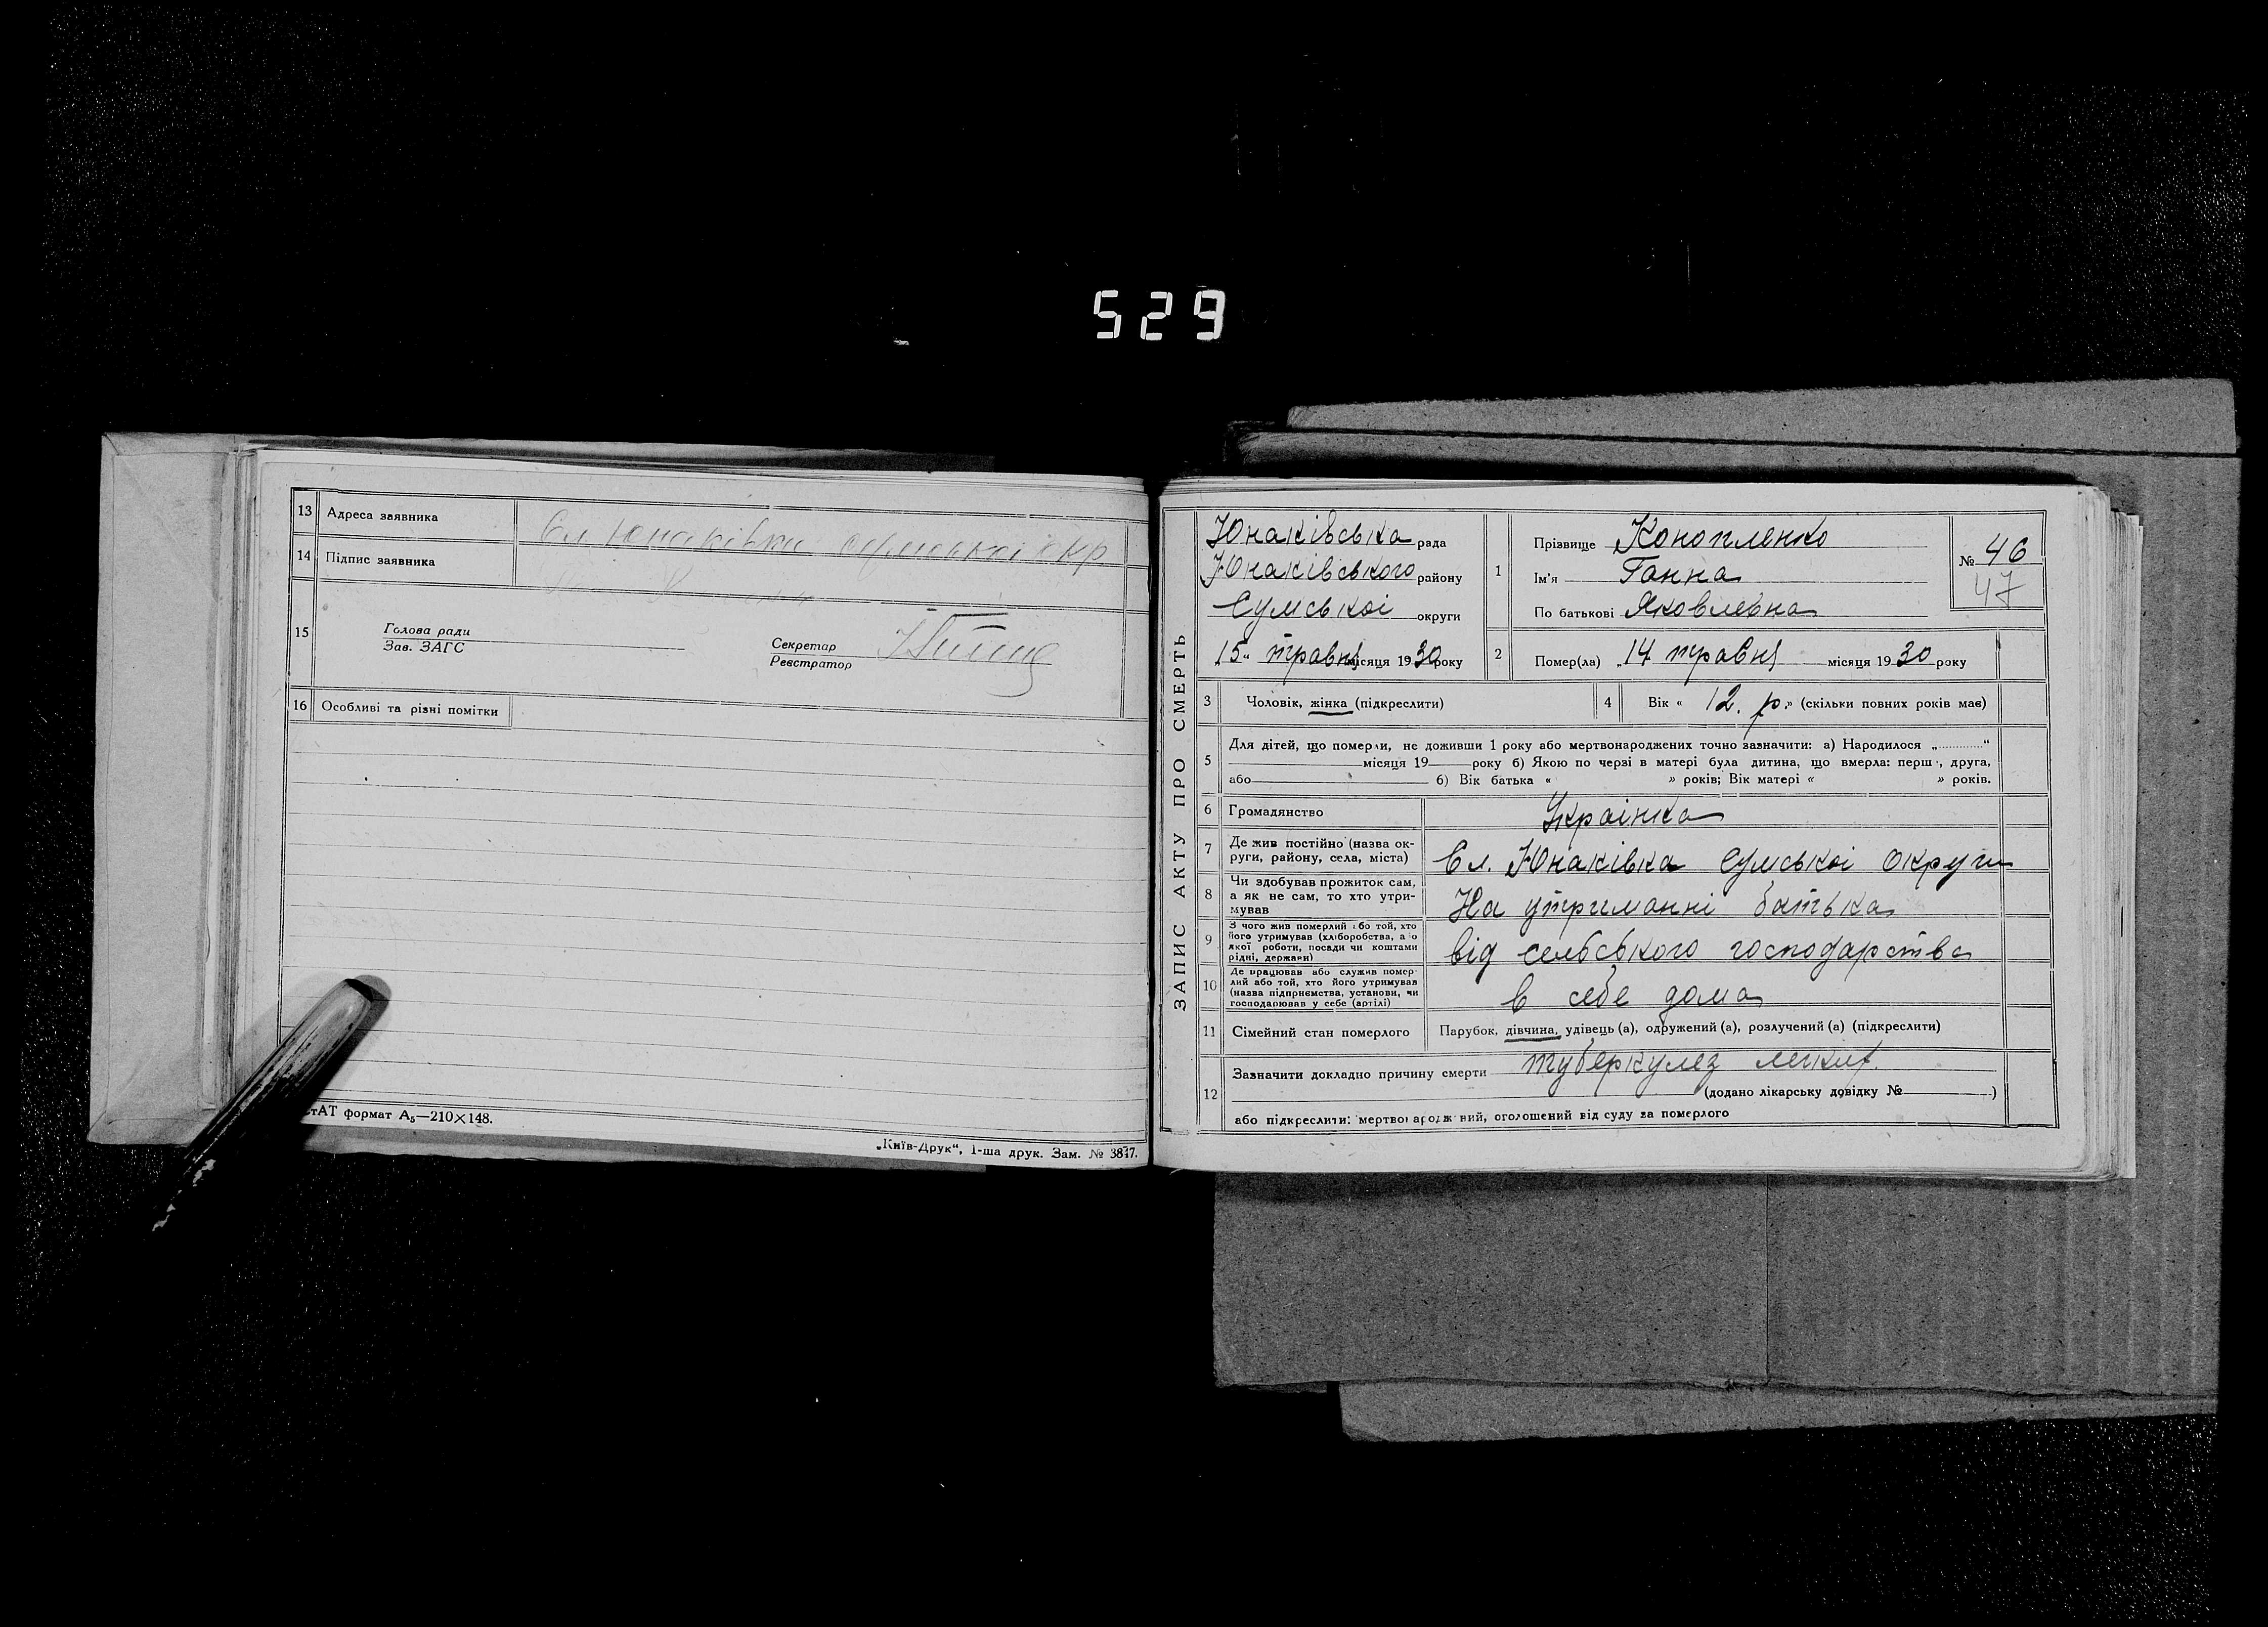 529
13 Адреса заявника Сл Юнаківка Сумської окр
14 Підпис заявника
15 Голова ради
Зав. ЗАГС
Секретар
Реєстратор
16 Особливі та різні помітки
тАТ формат А₅—210×148.
„Київ-Друк“, 1-ша друк. Зам. № 3847.
ЗАПИС АКТУ ПРО СМЕРТЬ
Юнаківська рада
Юнаківського району
Сумськоі округи
„15„ травня місяця 1930 року
1 Прізвище Конопленко
Ім'я Ганна
По батькові Яковлевна
№ 46
47
2 Помер(ла) „14 травня місяця 1930 року
3 Чоловік, жінка (підкреслити)
4 Вік « 12. р.» (скільки повних років має)
5 Для дітей, що померли, не доживши 1 року або мертвонароджених точно зазначити: а) Народилося „............“
місяця 19 року б) Якою по черзі в матері була дитина, що вмерла: перш , друга,
або б) Вік батька « » років; Вік матері « » років.
6 Громадянство Украінка
7 Де жив постійно (назва ок-
руги, району, села, міста) Сл. Юнаківка Сумськоі округи
8 Чи здобував прожиток сам,
а як не сам, то хто утри-
мував На утриманні батька
9 З чого жив померлий або той, хто
його утримував (хліборобства, або
якої роботи, посади чи коштами
рідні, держави) від сельського господарства
10 Де працював або служив помер-
лий або той, хто його утримував
(назва підприємства, установи, чи
господарював у себе (артілі) в себе дома
11 Сімейний стан померлого Парубок, дівчина, удівець (а), одружений (а), розлучений (а) (підкреслити)
12 Зазначити докладно причину смерти туберкулез легких.
(додано лікарську довідку № )
або підкреслити: мертвонароджений, оголошений від суду за померлого